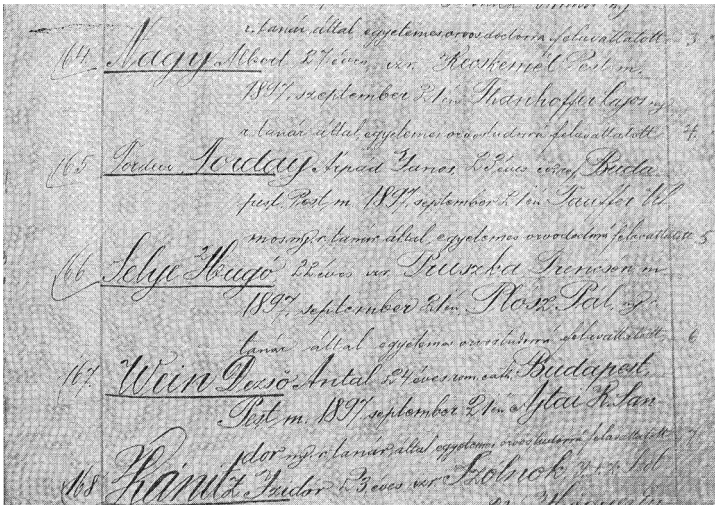 r. tanár által egyetemes orvosdoctorrá felavattatott 3
164 Nagy Albert 27 éves, izr. Kecskemét Pest m.
1897. szeptember 21én Thanhoffer Lajos ny.
r. tanár által egyetemes orvostudorrá felavattatott 4.
165 Torday Árpád János, 23 éves Buda-
pest, Pest m. 1897. september 21én Tauffer Vil-
mos ny. r. tanár által egyetemes orvostudorrá felavattatott 5
166 Selye Hugó 22 éves izr. Pruszka Trencsén m
1897. september 21én Plosz Pál ny.
tanár által egyetemes orvostudorrá felavattatott 6
167 Wein Dezső Antal 24 éves rom. cath. Budapest,
Pest m. 1897 september 21én Ajtai K. Sán-
dor ny. r. tanár által egyetemes orvostudorrá felavattatott 7
168 Kánitz Izidor 23 éves izr Szolnok